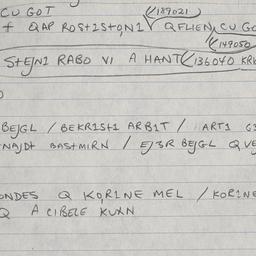 CU GOT (189021)
+ QAP ROSTISTONI QFLIEN, CU GO
(149050
STEJNI RABO VI A HANT (136040 KRK
BEJGL / BEKRISTI ARBIT / ARTI
NAJDT BASTMIRN / EJ3R BEJGL QVE
ONDES Q KORINE MEL / KORINE
Q A CIBELE KUXN